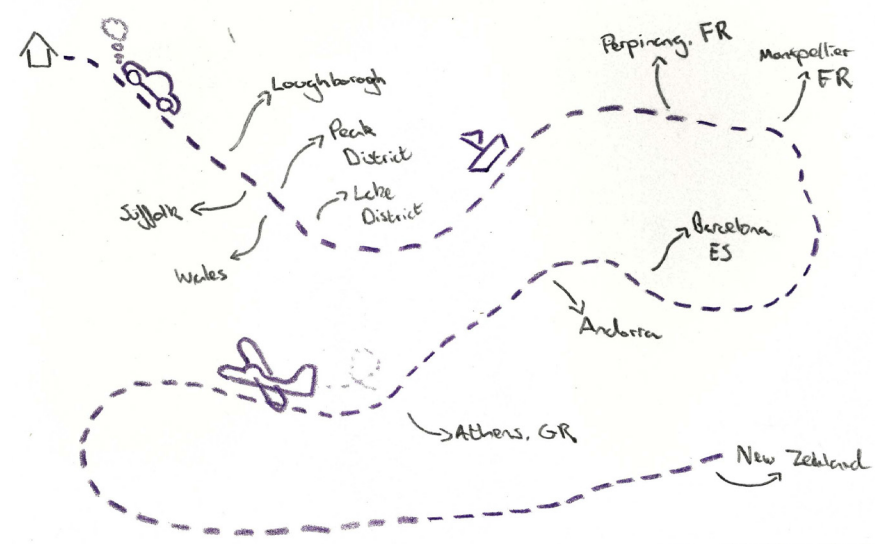 Loughborogh
Peak
District
Lake
District
Suffolk
Wales
Perpinang, FR
Montpellier
FR
Barcelona
ES
Andorra
Athens, GR
New Zealand